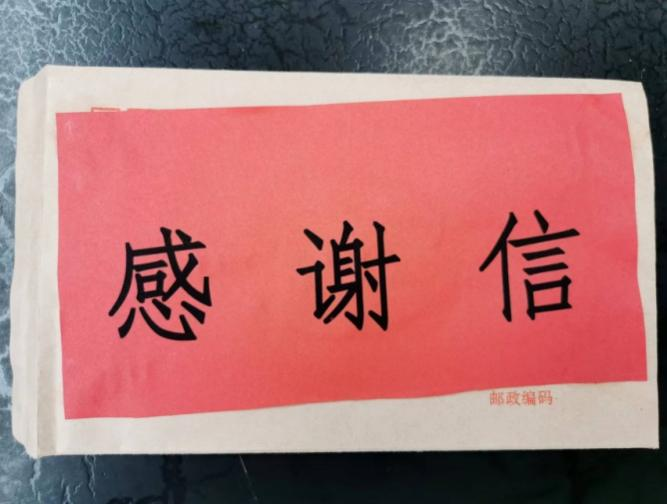 感谢信
邮政编码